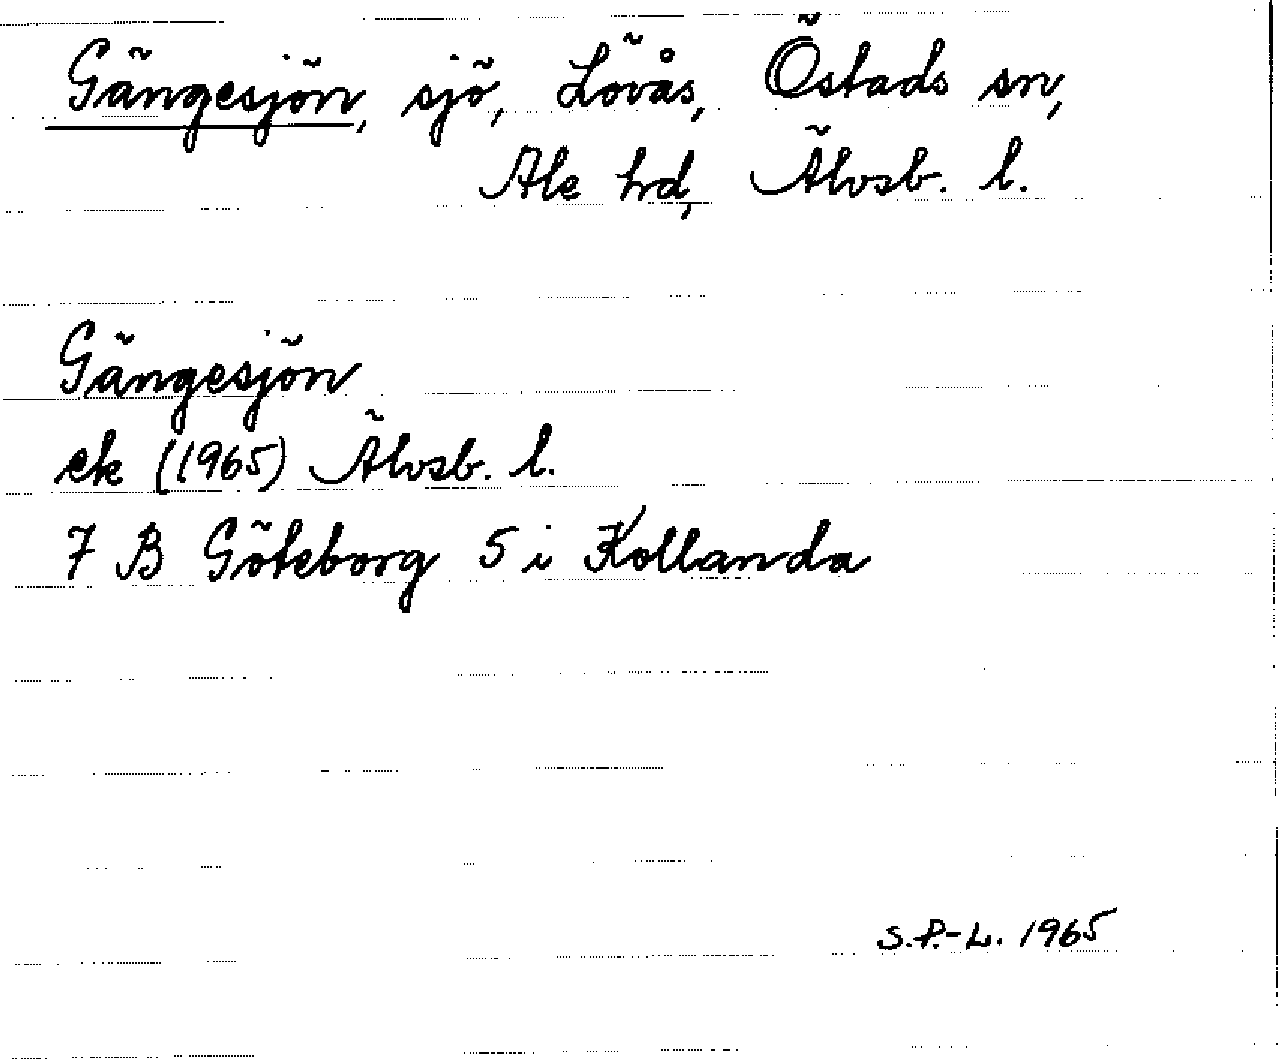 Gängesjön, sjö, Lövås, Östads sn,
Ale hd, Älvsb. l.
Gängesjön
ek (1965) Älvsb. l.
7 B Göteborg 5 i Kollanda
S.P.-L. 1965